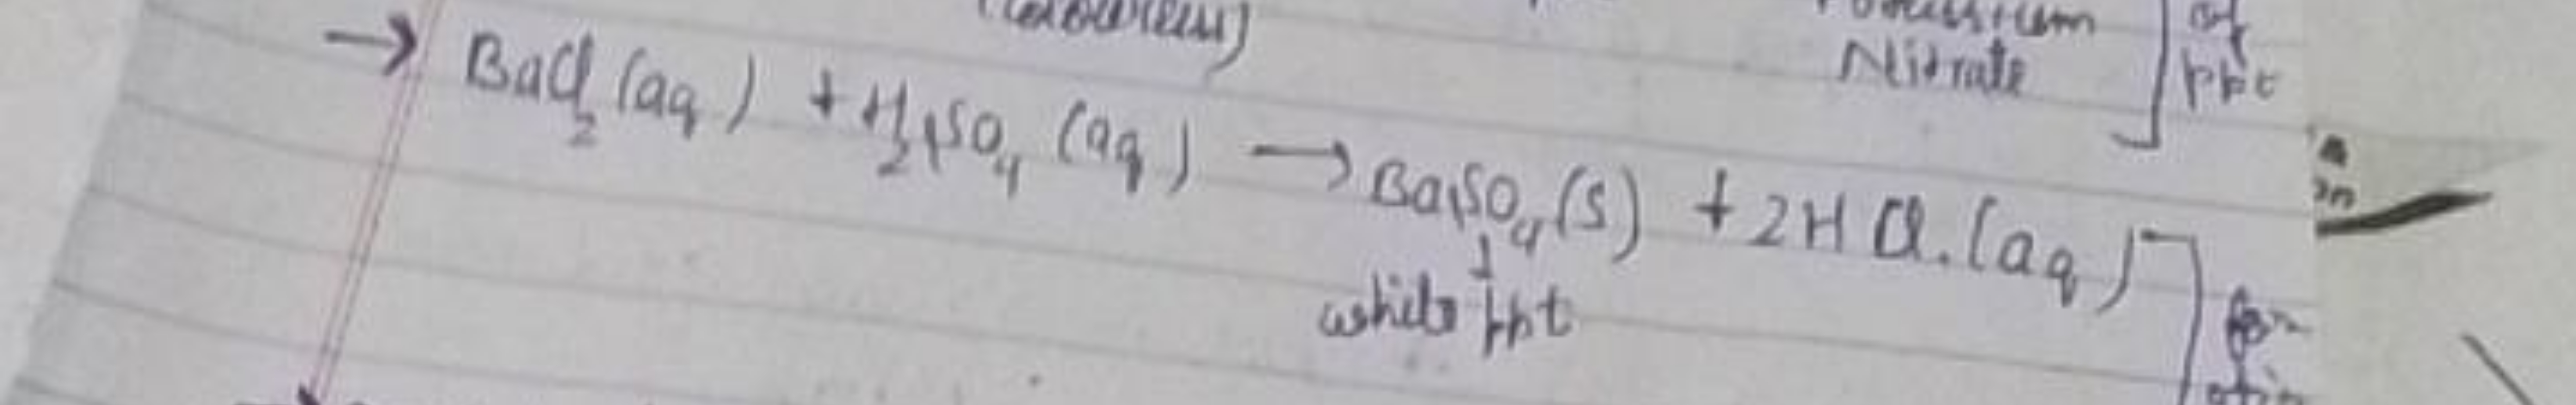 (colourless)
Nitrate
of
ppt
→ BaCl₂ (aq) + H₂SO₄ (aq) → BaSO₄ (s) + 2HCl. (aq)
↓
white ppt